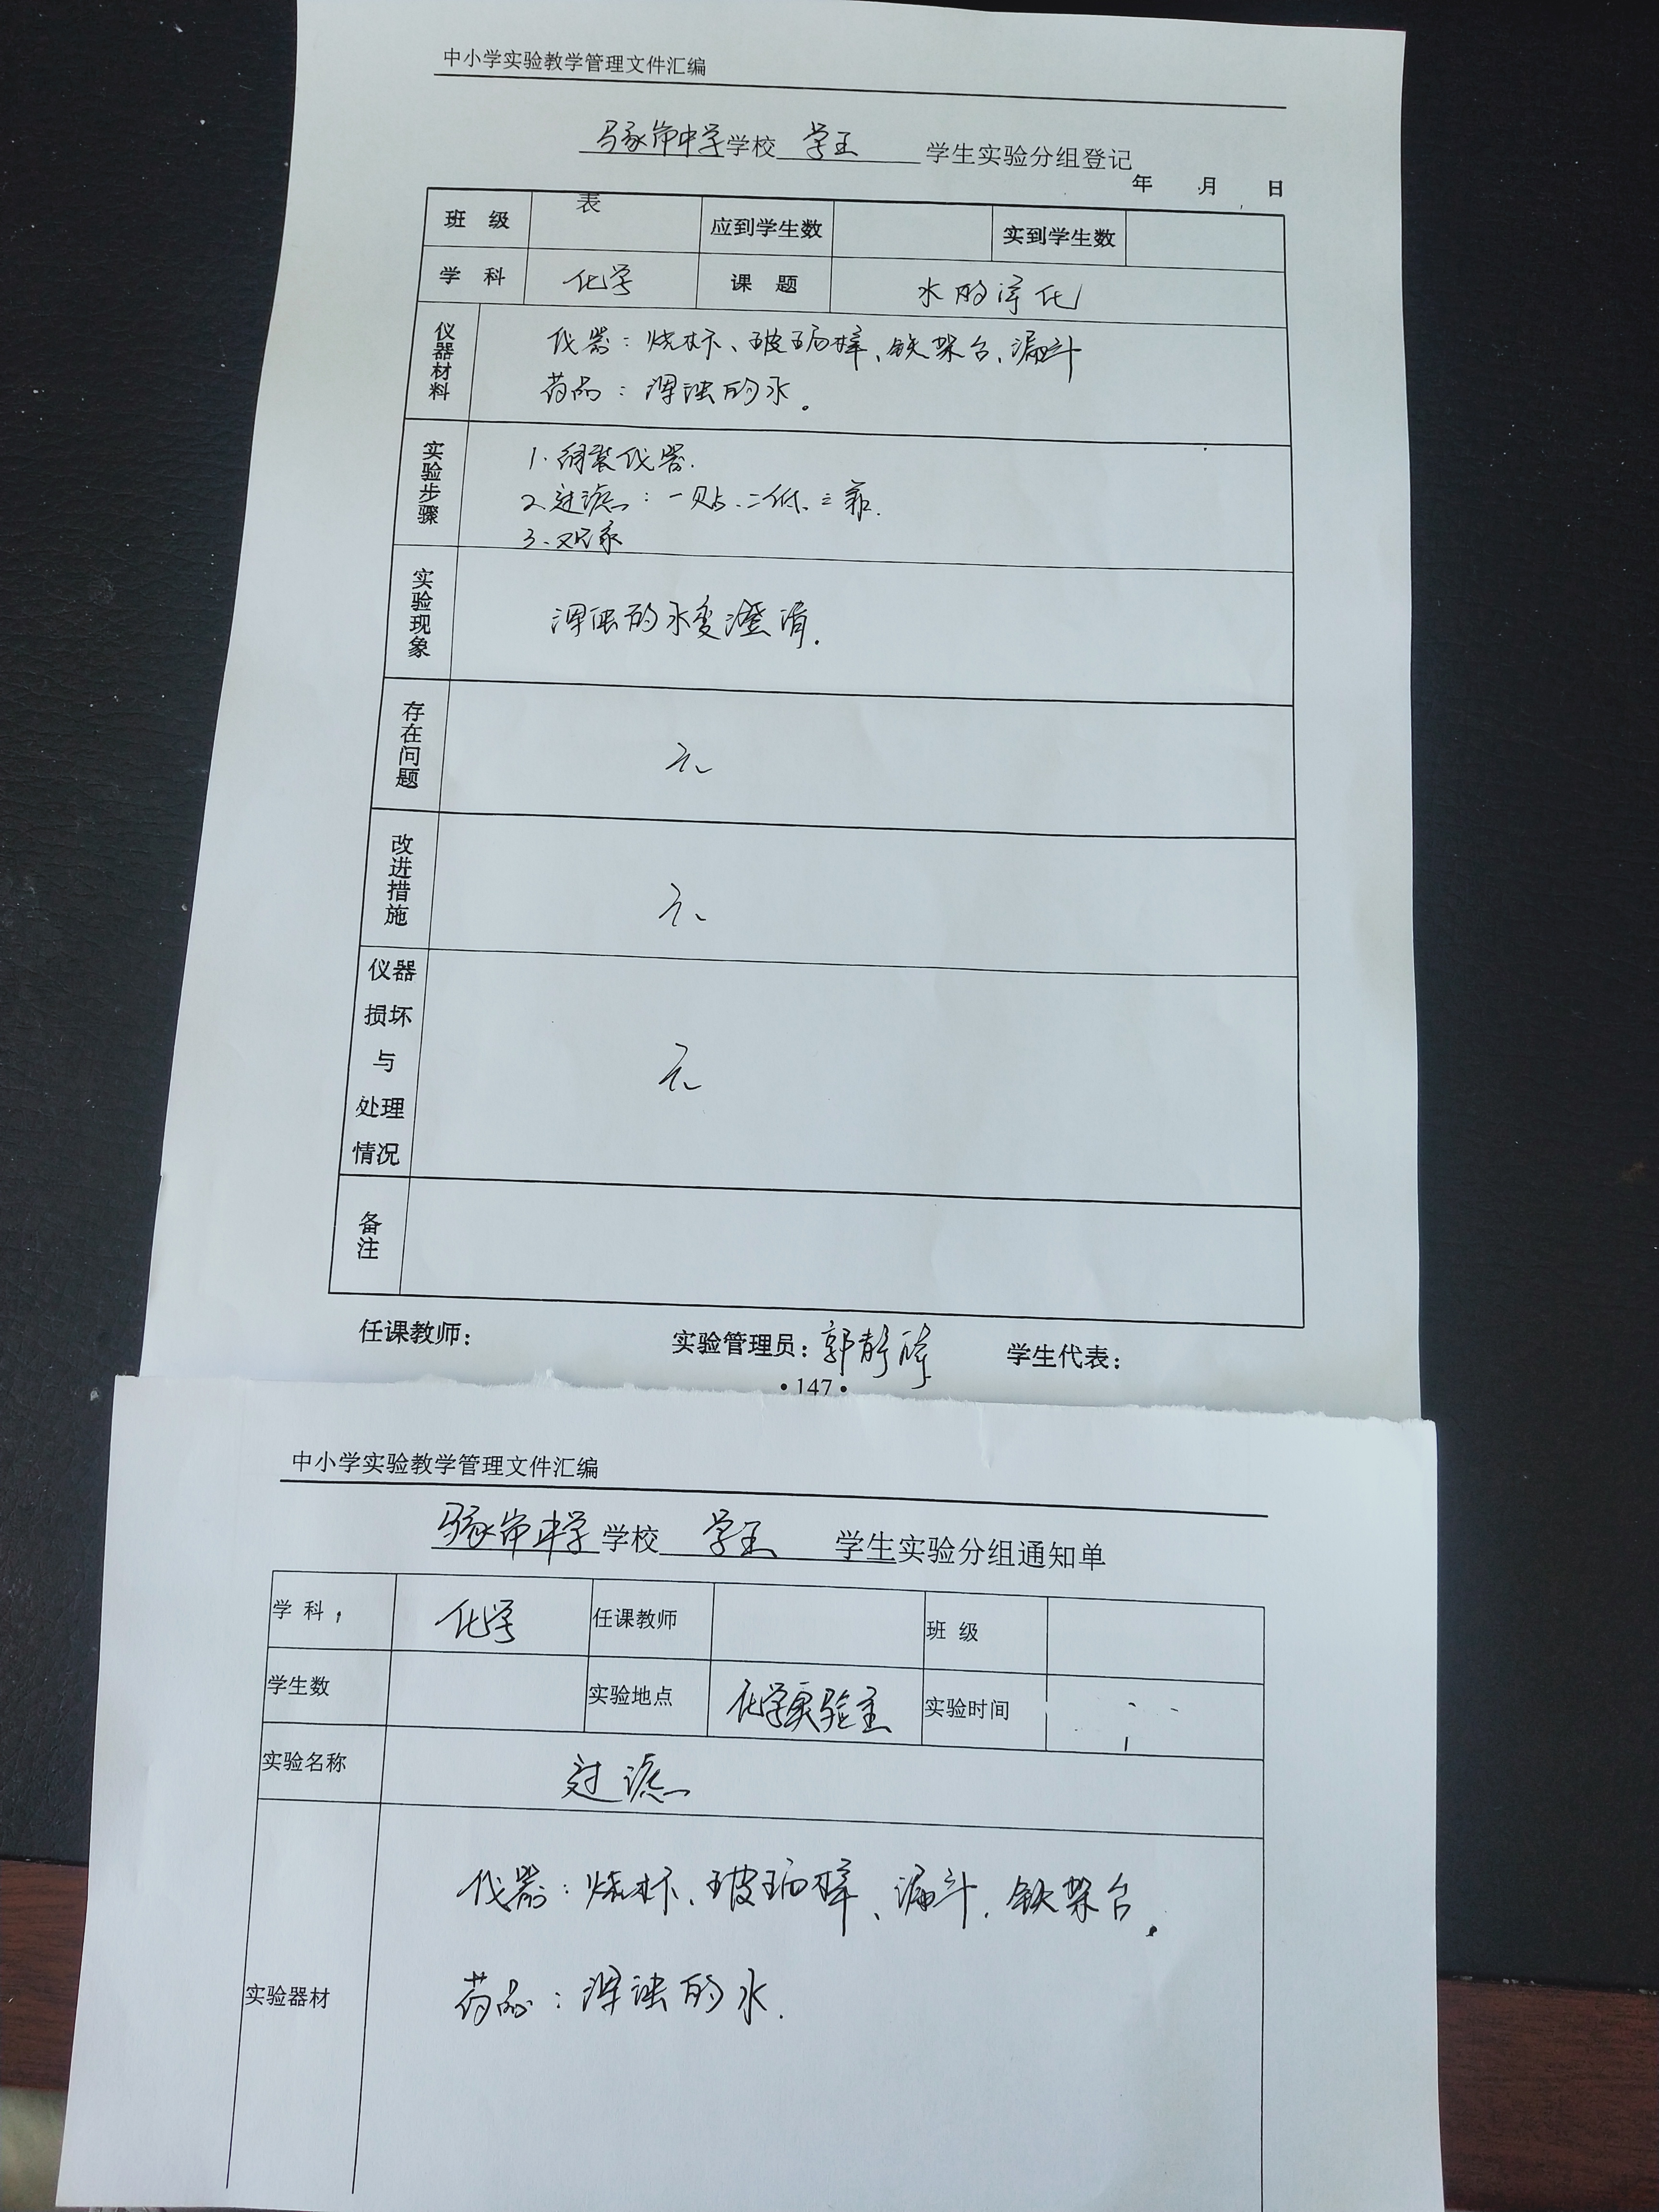 中小学实验教学管理文件汇编
马家砦中学学校 学生实验分组登记
年 月 日
表
班 级 应到学生数 实到学生数
学 科 化学 课 题 水的净化
仪器材料 仪器：烧杯、玻璃棒、铁架台、漏斗
药品：浑浊的水。
实验步骤 1.组装仪器.
2.过滤：一贴、二低、三靠.
3.观察
实验现象 浑浊的水变澄清.
存在问题 无
改进措施 无
仪器损坏与处理情况 无
备注
任课教师： 实验管理员：郭静 学生代表：
•147•
中小学实验教学管理文件汇编
中学学校 学生实验分组通知单
学 科 化学 任课教师 班 级
学生数 实验地点 化学实验室 实验时间
实验名称 过滤
仪器：烧杯、玻璃棒、漏斗、铁架台。
实验器材 药品：浑浊的水.